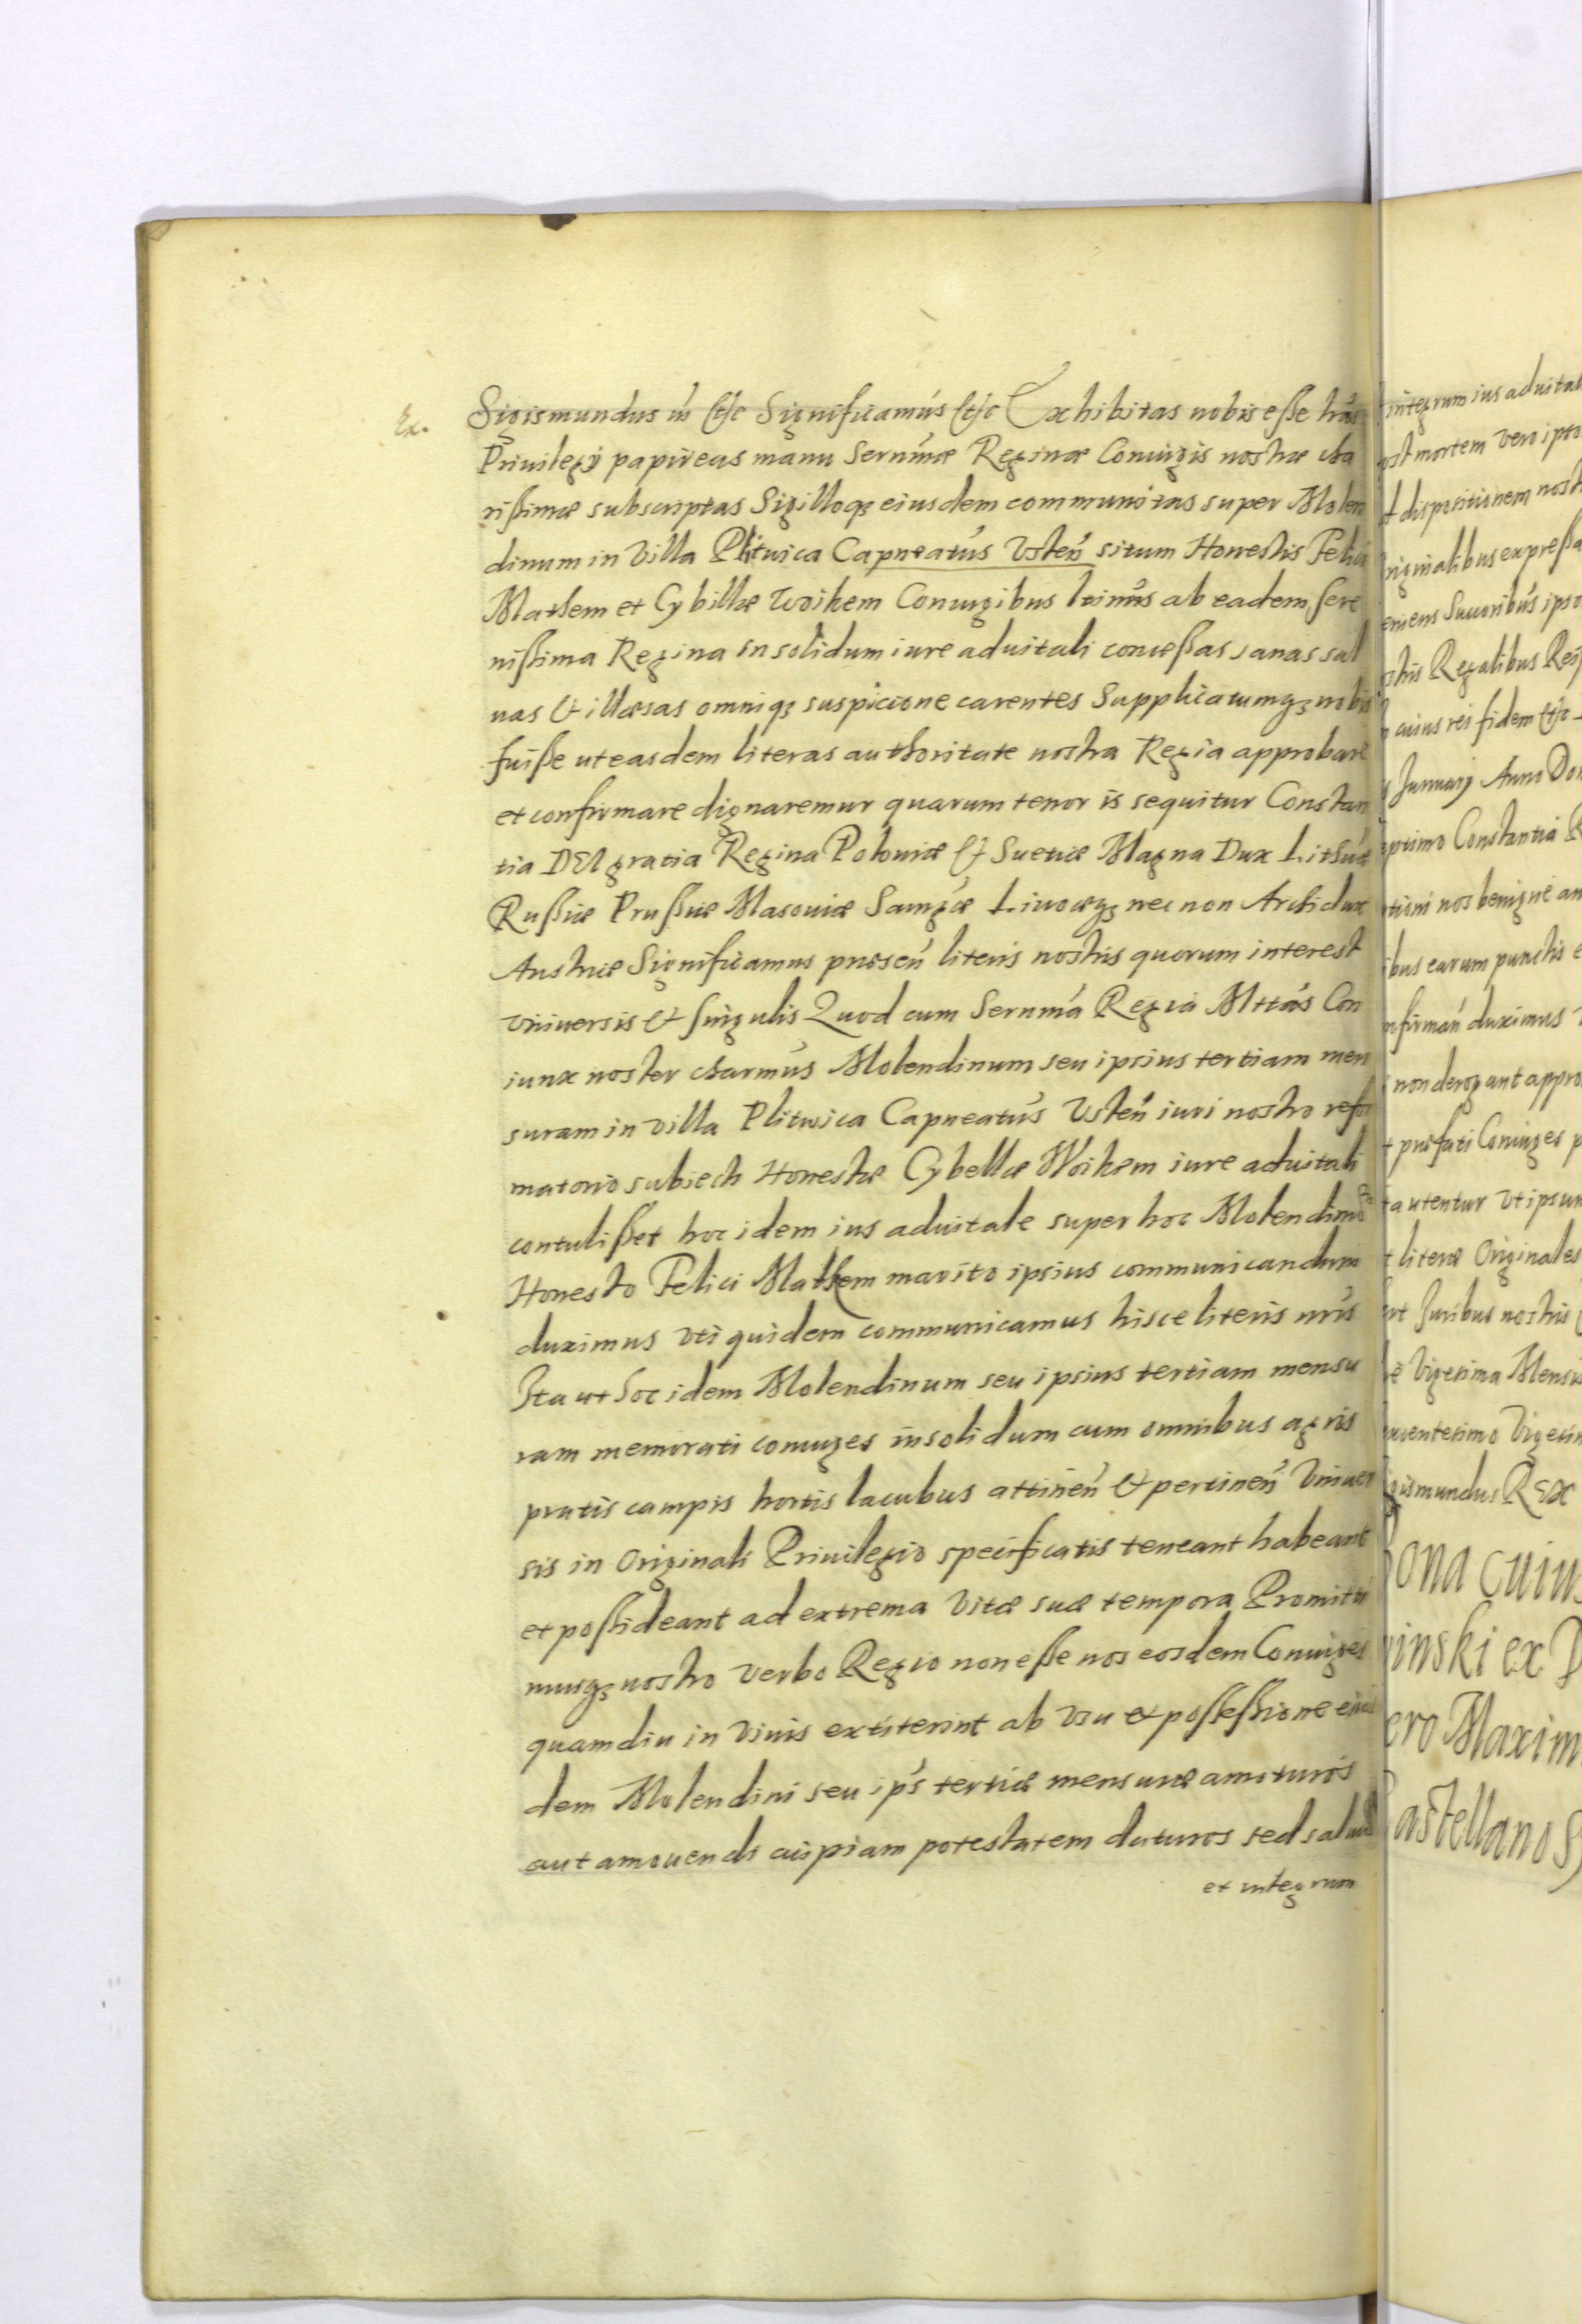 Ex.
Sigismundus iii &c Significamus &c Exhibitas nobis esse lras
Priuilegij papireas manu Sernmæ Reginæ Coniugis nostræ cha
rissimæ subscriptas Sigilloqz eiusdem communitas super Molen
dinum in Villa Plitwica Capneatus Vsten situm Honestis Felici
Mathem et Cybillæ Woihem Coniugibus ltimus ab eadem sere
nissima Regina in solidum iure aduitali concessas sanas sal
uas & illæsas omniqz suspicione carentes Supplicatumqz nobis
fuisse ut easdem literas authoritate nostra Regia approbare
et confirmare dignaremur quarum tenor is sequitur Constan
tia DEI gratia Regina Poloniæ & Suetiæ Magna Dux Lithuæ
Russiæ Prussiæ Masouiæ Samgæ Liuoæqz nec non Archidux
Austriæ Significamus præsen literis nostris quorum interest
Vniuersis & singulis Quod cum Sernma Regia Mttas Con
iunx noster charmus Molendinum seu ipsius tertiam men
suram in villa Plitwica Capneatus Vsten iuri nostro refor
matorio subiecti Honestæ Cybellæ Woihem iure aduitali
contulisset hoc idem ius aduitale super hoc Molendino
Honesto Felici Mathem marito ipsius communicandum
duximus vti quidem communicamus hisce literis nris
Ita ut hoc idem Molendinum seu ipsius tertiam mensu
ram memorati coniuges in solidum cum omnibus agris
pratis campis hortis lacubus attinen & pertinen Vniuer
sis in Originali Priuilegio specificatis teneant habeant
et possideant ad extrema Vitæ suæ tempora Promitti
musqz nostro Verbo Regio non esse nos eosdem Coniuges
quamdiu in Viuis extiterint ab Vsu & possessione eius
dem Molendini seu ips tertiæ mensuræ amoturos
aut amouendi cuipiam potestatem daturos sed saluū
et integrum
integrum ius aduital
ost mortem vero ipso
d dispositionem nost
riginalibus expressa
eniens Succoribus ipso
stris Regalibus Reip
cuius rei fidem &c
Januarij Anno Dom
eptimo Constantia R
tioni nos benigne an
ibus earum punctis e
nfirman duximus
non derogant appro
t præfati Coniuges p
ta utentur Vt ipsum
t literæ Originales
ert Juribus nostris
Vigesima Mensis
xcentesimo Vigesim
gismundus REX
ona cuius
inski ex P
ero Maxim
astellano S